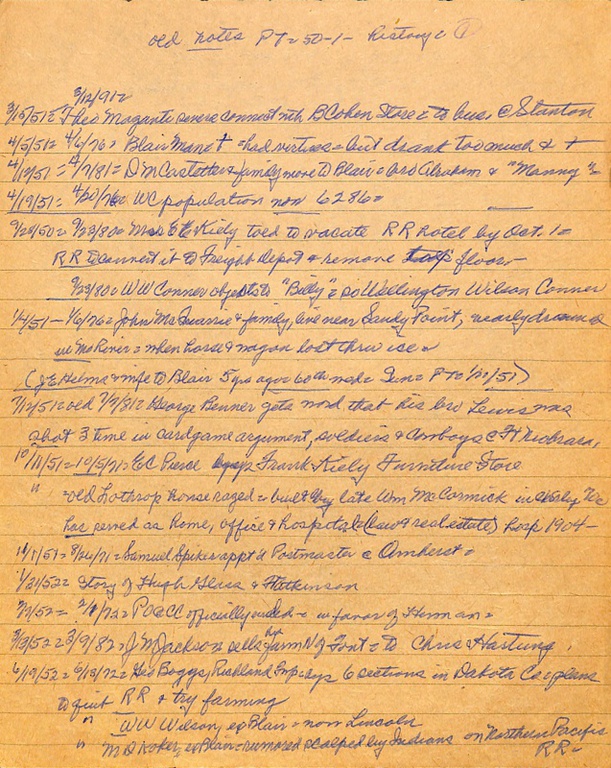 old notes PT = 50-1 - history = ①
3/12/91 =
3/15/51 = Theo Magaret severe connect with B Cohen Store = to bus. @ Stanton
4/5/51 = 4/6/76 = Blair Man = had virtues = but drank too much & +
4/12/51 = 4/7/81 = D M Castetter & family move to Blair = bro Abraham & "Manny" =
4/19/51 = 4/20/76 WC population now 6286 =
9/28/50 = 9/23/80 = Mrs E Kiely told to vacate RR hotel by Oct. 1 =
RR to convert it to Freight depot & remove floor -
9/23/80 = WW Conner objects to "Billy" = so Wellington Wilson Conner
1/4/51 - 1/6/76 = John McQuarrie & family, live near Sandy Point, nearly drowned
in Mo River = when horse & wagon lost thru ice =
(J E Helms & wife to Blair 5 yrs ago = 60th wed = Sen = PT 1/11/51)
7/12/51 = old 7/7/81 = George Benner gets word that his bro Lewis was
shot 3 time in cardgame argument, soldiers & Cowboys @ Ft Niobrara,
10/11/51 = 10/5/71 = EC Pierce buys Frank Kiely Furniture Store
" = old Lothrop house razed = built by late Wm McCormick in early 70s
has served as home, office & hospital (law & real estate) hosp 1904 -
11/1/51 = 8/26/71 = Samuel Spiker apptd Postmaster @ Amherst =
1/31/52 = Story of Hugh Glass & Atkinson
2/7/52 = PO @ CC officially ended = in favor of Herman =
3/13/52 = 3/9/82 = J M Jackson sells farm N of Font = to Chris Hartung
6/19/52 = 6/13/72 = Geo Boggs, Richland Twp buys 6 sections in Dakota Co = plans
to quit RR & try farming
" WW Wilson, ex Blair = now Lincoln
" M D Koker, ex Blair = rumored scalped by Indians on Northern Pacific
RR =